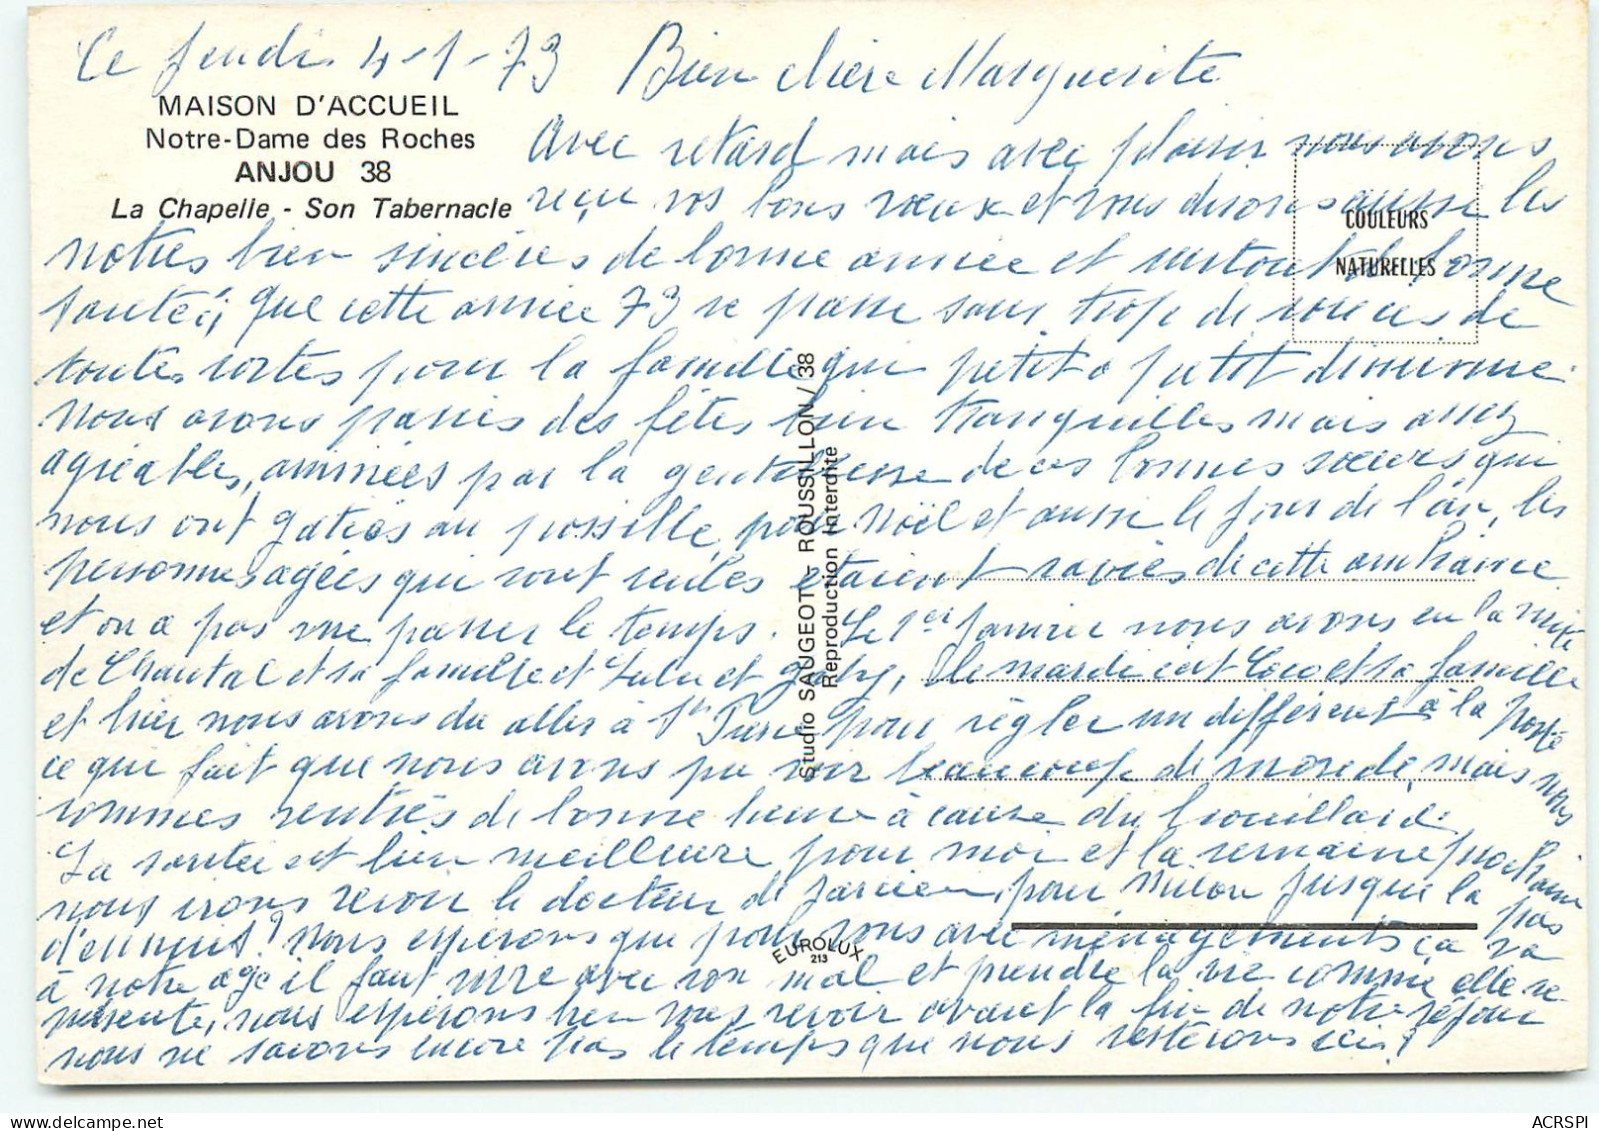 Ce Jeudi 4-1-73 Bien chère Marguerite
MAISON D'ACCUEIL
Notre-Dame des Roches
ANJOU 38
La Chapelle - Son Tabernacle
Avec retard mais avec plaisir nous avons
reçu vos bons vœux et vous disons aussi les
COULEURS
NATURELLES
notres bien sincères de bonne année et surtout de bonne
santé, que cette année 73 se passe sans trop de soucis de
toutes sortes pour la famille qui petit a petit diminue.
Nous avons passés des fêtes bien tranquilles mais assez
agréables, animées par la gentillesse de ces bonnes sœurs qui
nous ont gatées au possible, pour Noël et aussi le jour de l'an, les
personnes agées qui sont seules étaient ravies de cette ambiance
et on a pas vue passer le temps. Le 1er Janvier nous avons eu la visite
de Chantal et sa famille et Lulu et Gaby, le mardi c'est Coco et sa famille
et hier nous avons du aller à pour règler un différent à la poste
ce qui fait que nous avons pu voir beaucoup de monde, mais nous
sommes rentrés de bonne heure à cause du brouillard.
La santé est bien meilleure pour moi et la semaine prochaine
nous irons revoir le docteur pour jusque la pas
d'ennuis! Nous espérons que pour vous avec ménagements ça va
à notre age il faut vivre avec son mal et prendre la vie comme elle se
présente, nous espérons bien vous revoir avant la fin de notre séjour
nous ne savons encore pas le temps que nous resterons ici?
Studio SAUGEOT - ROUSSILLON / 38
Reproduction Interdite
EUROLUX
213
ACRSPI